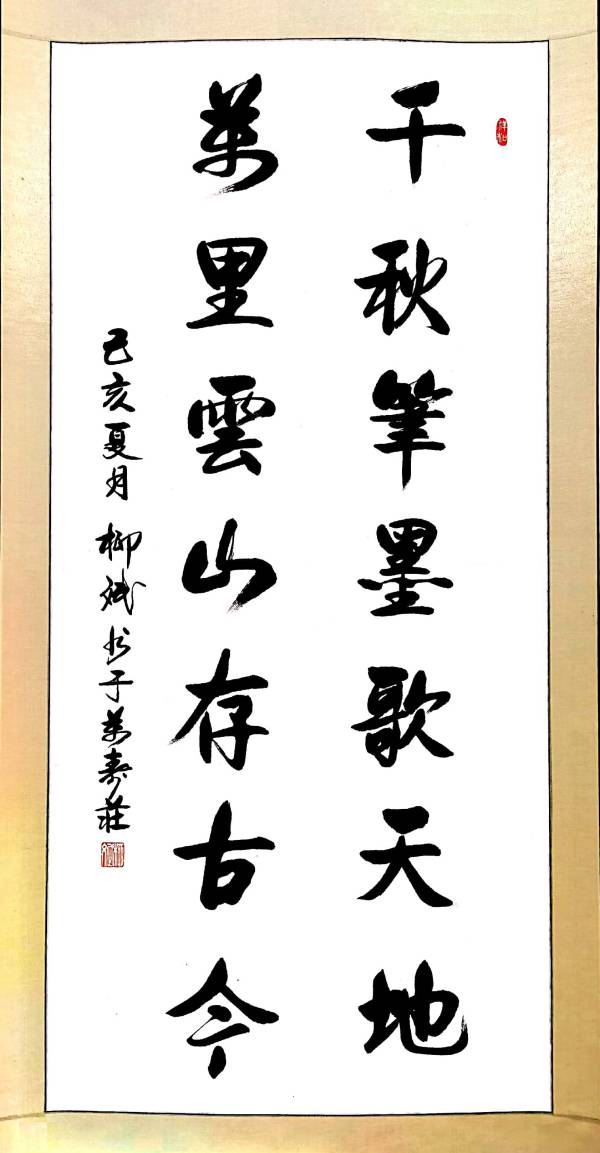 千秋筆墨歌天地
萬里雲山存古今
己亥夏月 柳斌书于萬寿莊